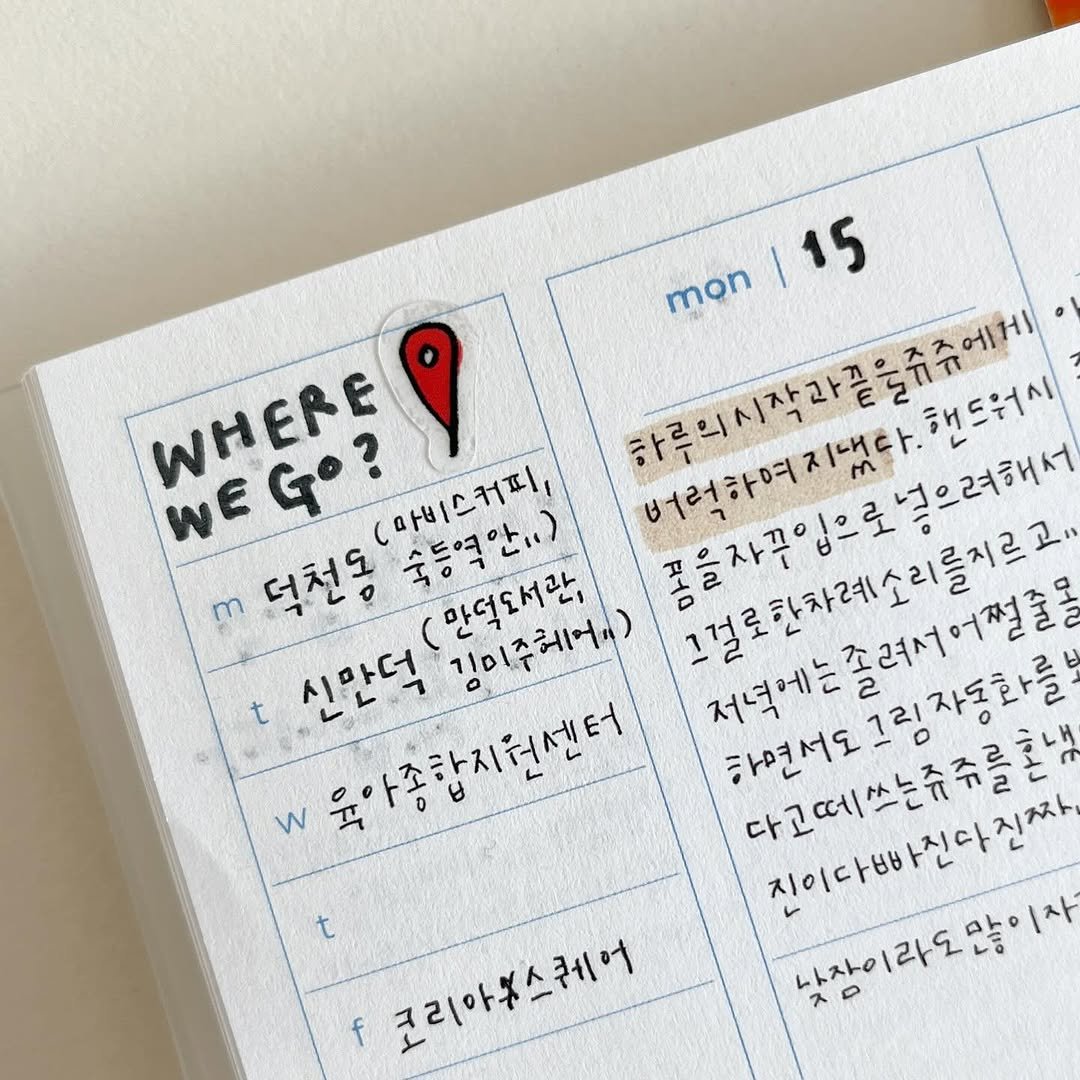 WHERE
WE GO?
m 덕천동 (마비스커피,
숙등역 안..)
t 신만덕 (만덕도서관,
김미주헤어..)
w 육아종합지원센터
t
f 코리아스퀘어
mon | 15
하루의 시작과 끝을 쥬쥬에게
버럭하여 지냈다. 핸드워시
폼을 자꾸 입으로 넣으려해서
그걸로 한차례 소리를 지르고..
저녁에는 졸려서 어쩔 줄 몰
하면서도 그림 자동화를
다고 떼쓰는 쥬쥬를 혼냈
진이 다 빠진다 진짜,
낮잠이라도 많이